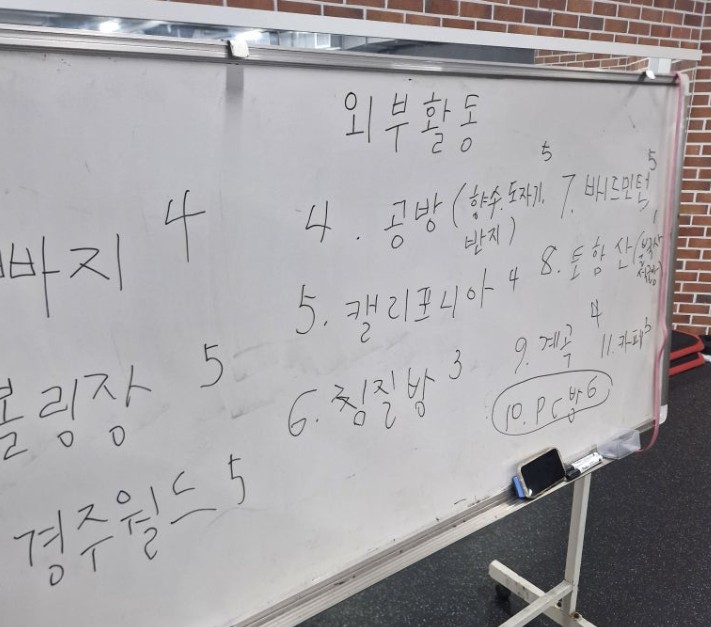 외부활동
빠지 4
볼링장 5
경주월드 5
4. 공방 (향수. 도자기. 반지) 5
5. 캘리포니아 4
6. 찜질방 3
7. 배드민턴 5
8. 토함산 (불국사
9. 계곡 4
10. PC방 6
11. 카페 3